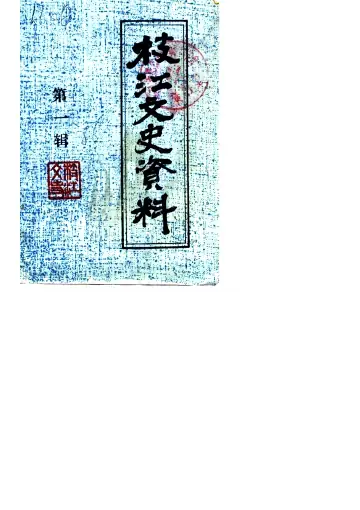 枝江文史資料
第一辑